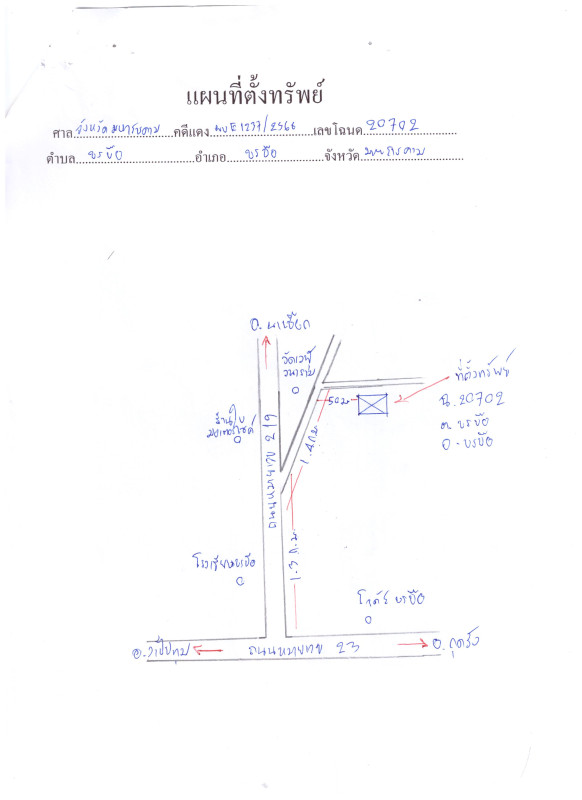 แผนที่ตั้งทรัพย์
ศาล จังหวัดมหาสารคาม คดีแดง ผบE1237/2566 เลขโฉนด 20702
ตำบล บรบือ อำเภอ บรบือ จังหวัด มหาสารคาม
อ. นาเชือก
วัดเวฬุ
วนาราม
50 ม
ที่ตั้งทรัพย์
ฉ. 20702
ต. บรบือ
อ. บรบือ
ร้าน
มอเตอร์ไซค์
ถนนหมายเลข 219
1.4 กม
1.3 ก.ม
โรงเรียนบรบือ
โลตัส บรบือ
อ. วาปีปทุม
ถนนหมายเลข 23
อ. กุดรัง